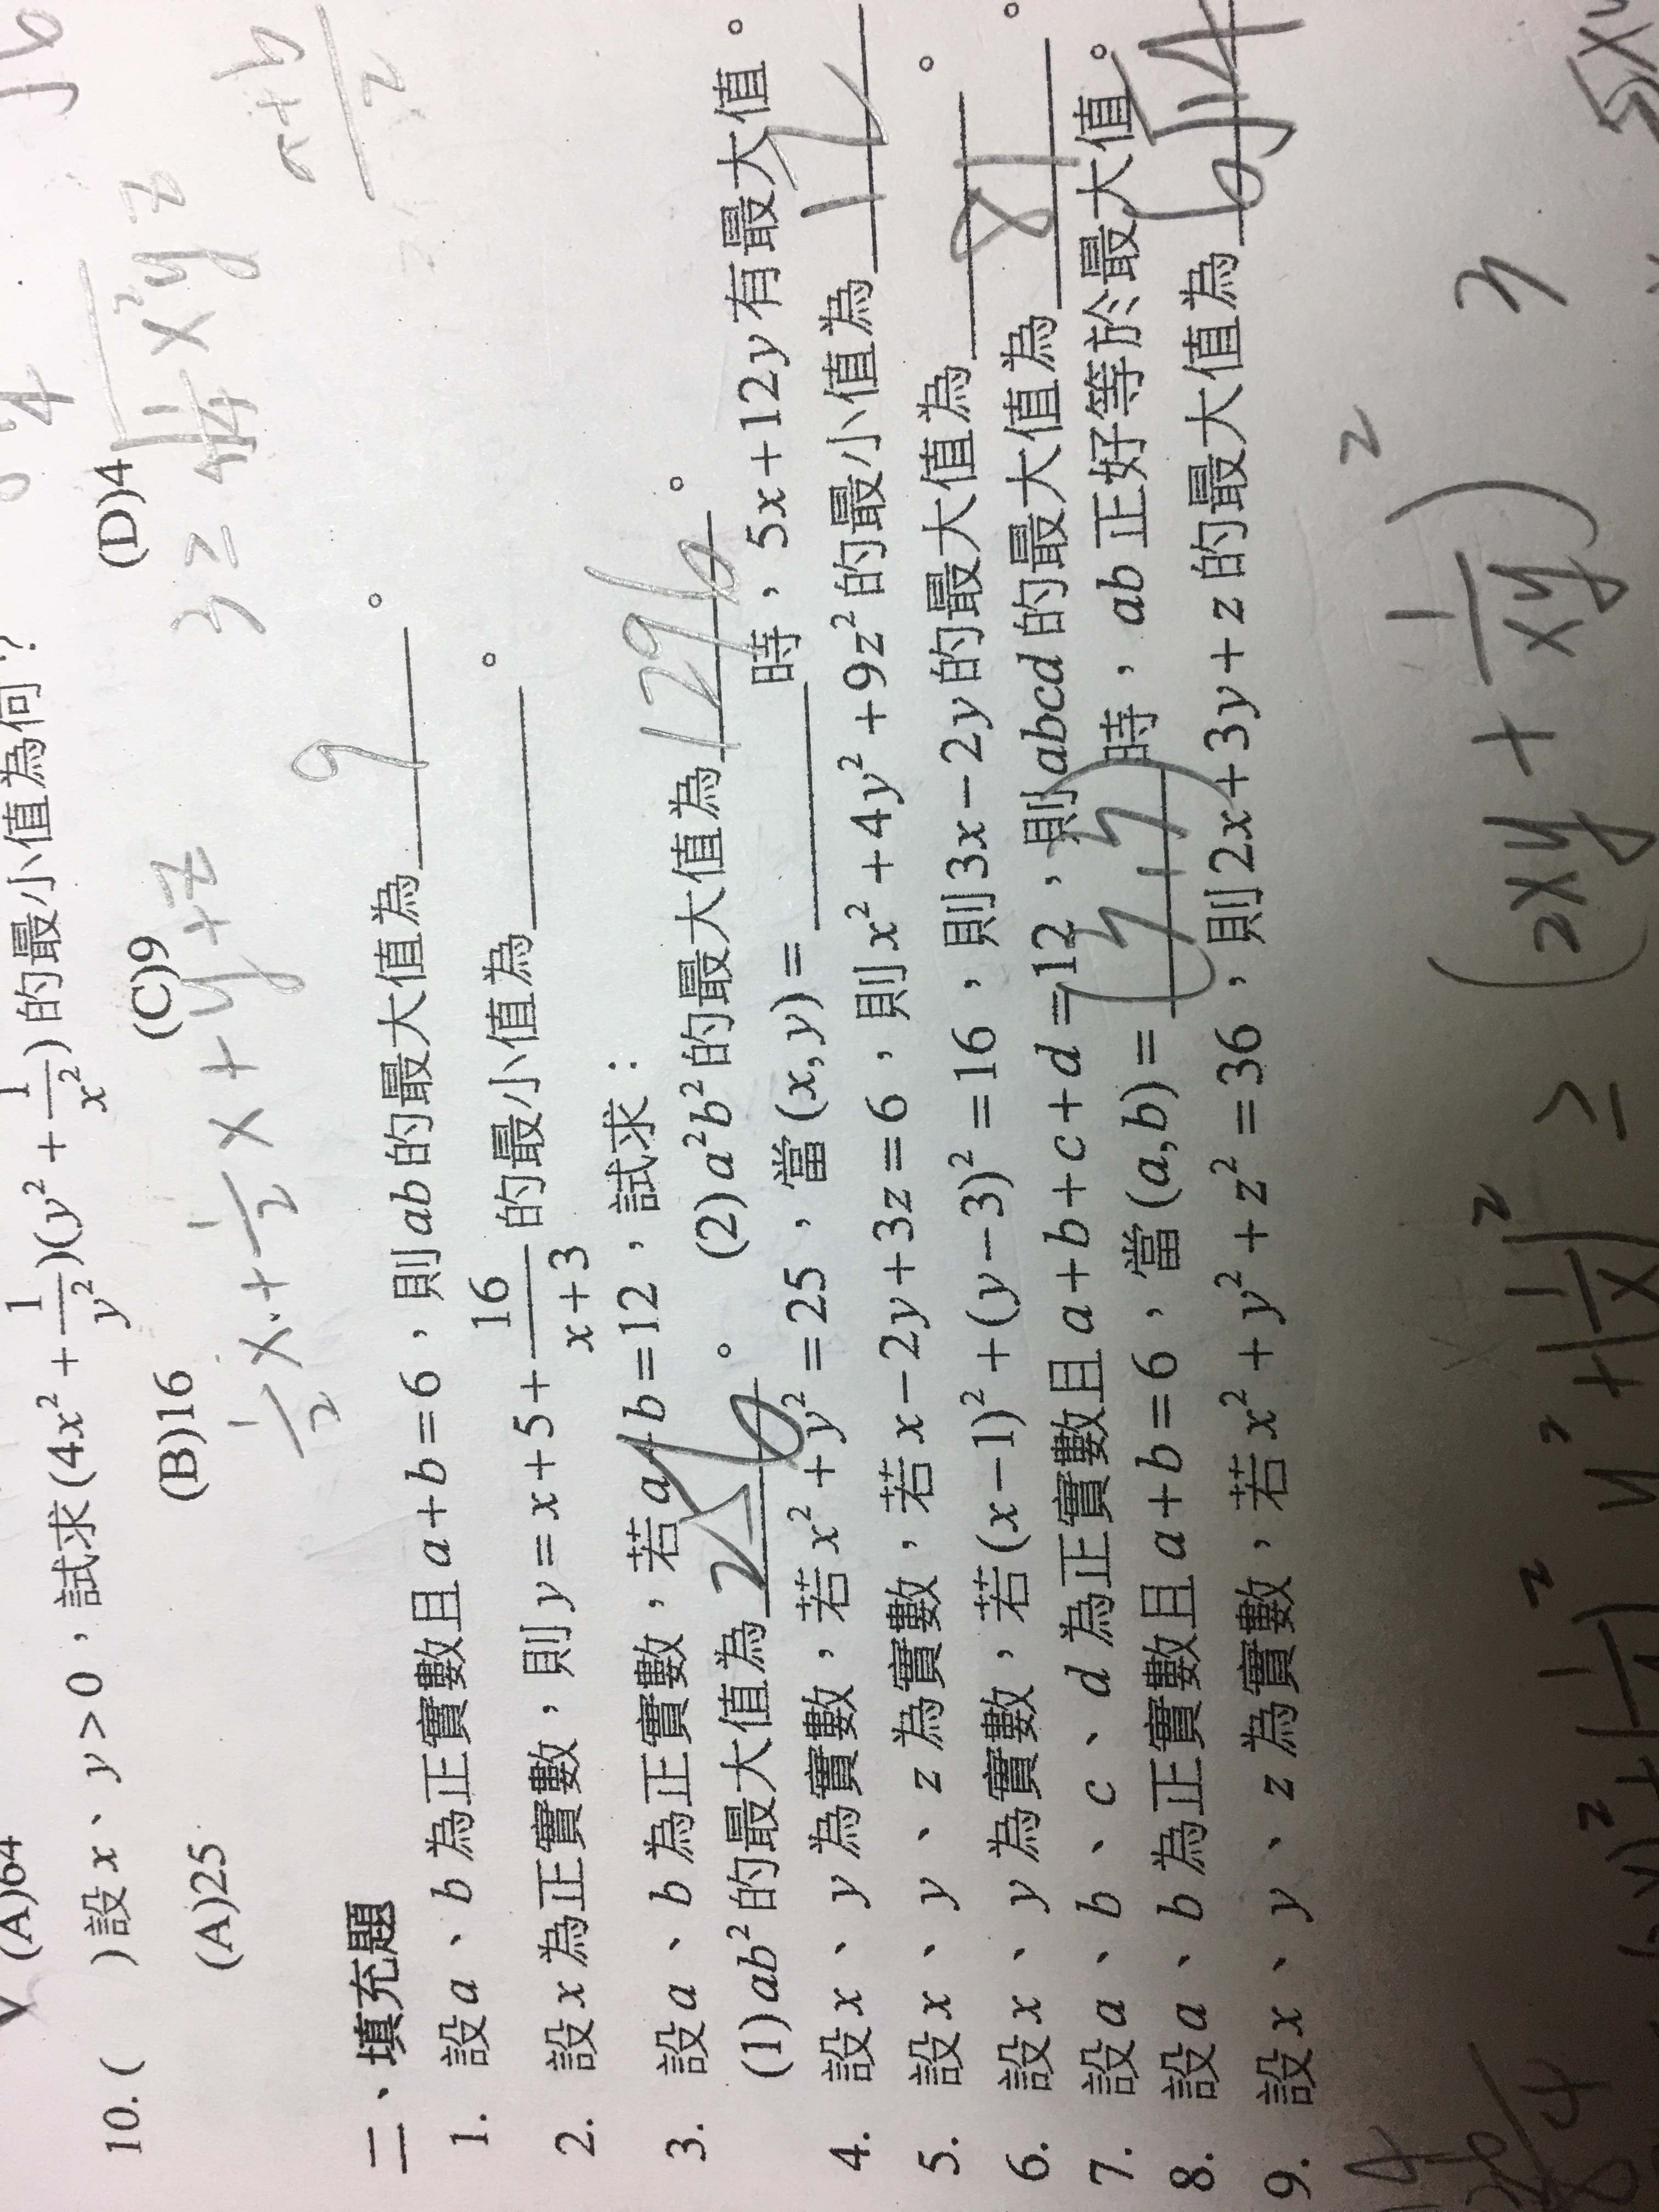 (A)64
10. ( )設x、y>0，試求(4x²+1/y²)(y²+1/x²)的最小值為何？
(A)25 (B)16 (C)9 (D)4
1/2 x + 1/2 x + y + z
3 ≥
a+b/2
二、填充題
1. 設a、b為正實數且a+b=6，則ab的最大值為 9 。
2. 設x為正實數，則y=x+5+16/x+3的最小值為____。
3. 設a、b為正實數，若a+b=12，試求：
(1)ab²的最大值為 256 。 (2)a²b²的最大值為 1296 。
4. 設x、y為實數，若x²+y²=25，當(x,y)=____時，5x+12y有最大值。
5. 設x、y、z為實數，若x-2y+3z=6，則x²+4y²+9z²的最小值為 12 。
6. 設x、y為實數，若(x-1)²+(y-3)²=16，則3x-2y的最大值為____。
7. 設a、b、c、d為正實數且a+b+c+d=12，則abcd的最大值為 81 。
8. 設a、b為正實數且a+b=6，當(a,b)= (3,3) 時，ab正好等於最大值。
9. 設x、y、z為實數，若x²+y²+z²=36，則2x+3y+z的最大值為 6√14
≥ (2xy + 1/xy)²
3